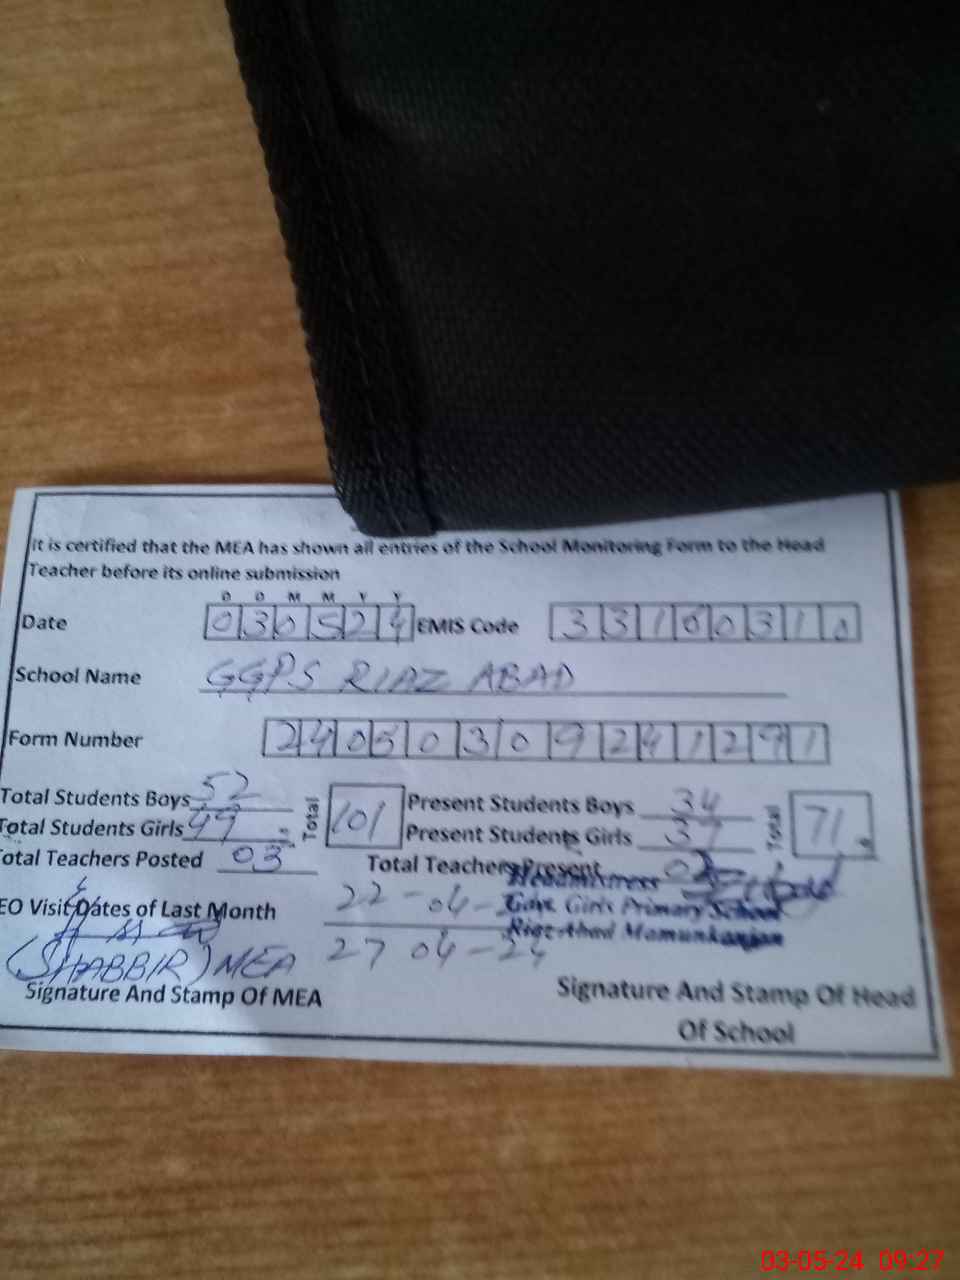 It is certified that the MEA has shown all entries of the School Monitoring Form to the Head
Teacher before its online submission
D D M M Y Y
Date 030524 EMIS Code 33160310
School Name GGPS RIAZ ABAD
Form Number 24050309241291
Total Students Boys 52 Total 101 Present Students Boys 34 Total 71
Total Students Girls 49 Present Students Girls 37
Total Teachers Posted 03 Total Teachers Present
Headmistress
EO Visit Dates of Last Month 22-04- Govt. Girls Primary School
Riaz Abad Mamunkanjan
(SHABBIR) MEA 27 04-24
Signature And Stamp Of MEA Signature And Stamp Of Head
Of School
03-05-24 09:27